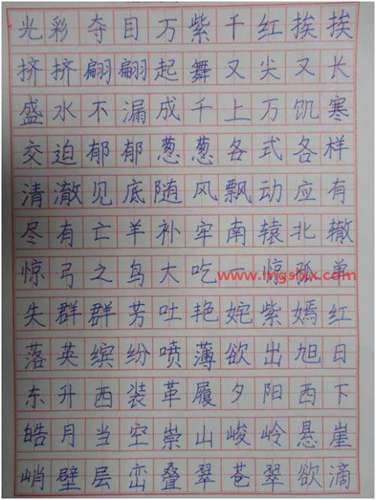 光彩夺目万紫千红挨挨
挤挤翩翩起舞又尖又长
盛水不漏成千上万饥寒
交迫郁郁葱葱各式各样
清澈见底随风飘动应有
尽有亡羊补牢南辕北辙
惊弓之鸟大吃一惊孤单
www.lngsbx.com
失群群芳吐艳姹紫嫣红
落英缤纷喷薄欲出旭日
东升西装革履夕阳西下
皓月当空崇山峻岭悬崖
峭壁层峦叠翠苍翠欲滴